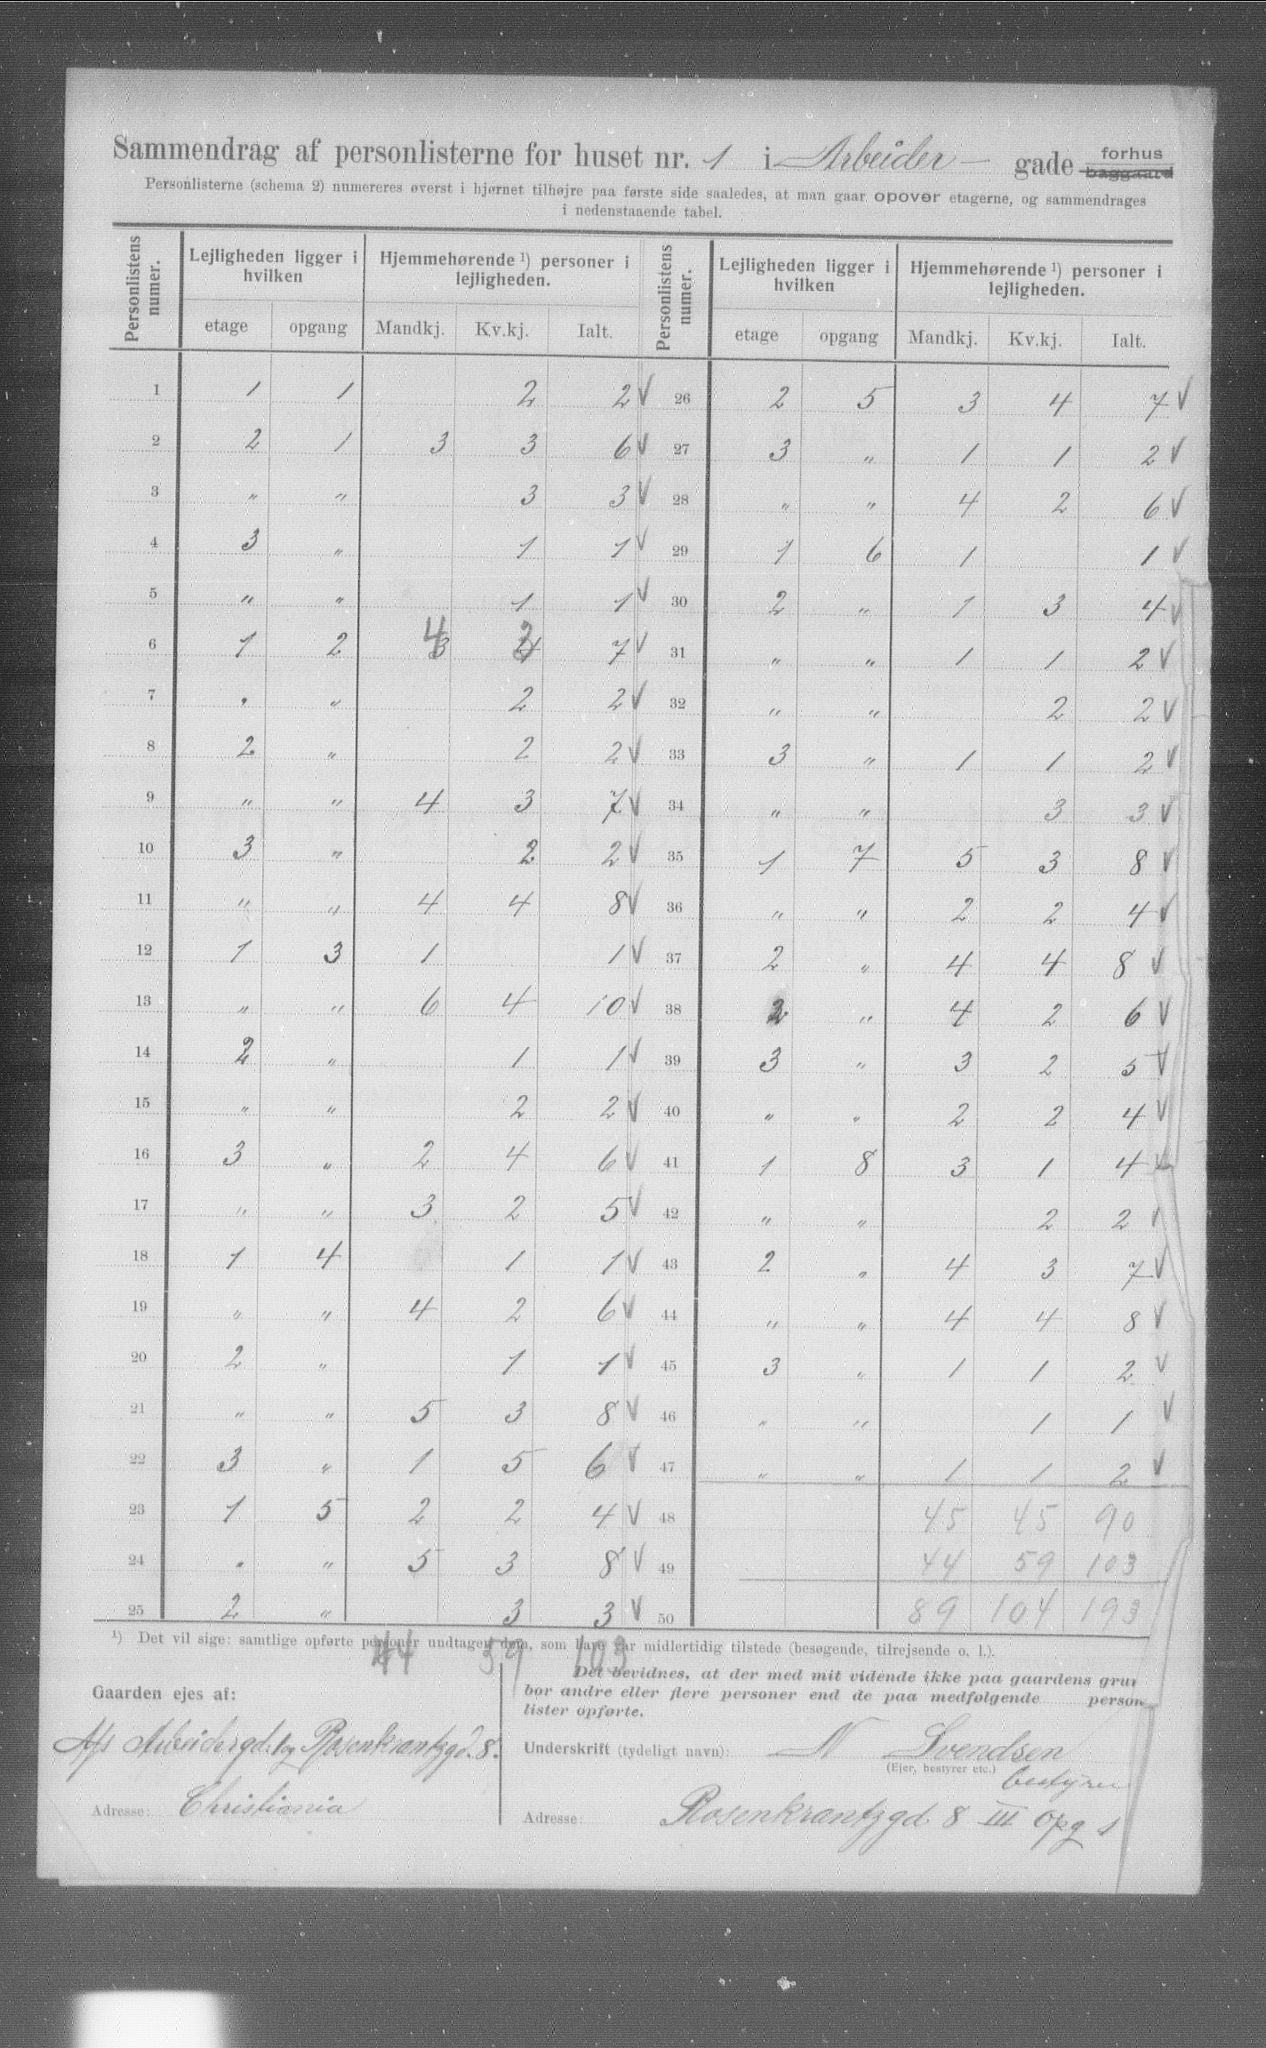 Sammendrag af personlisterne for huset nr. 1 i Arbeider- gade forhus baggaard
Personlisterne (schema 2) numereres øverst i hjørnet tilhøjre paa første side saaledes, at man gaar opover etagerne, og sammendrages
i nedenstaaende tabel.
Personlistens numer. Lejligheden ligger i hvilken Hjemmehørende ¹) personer i lejligheden. Personlistens numer. Lejligheden ligger i hvilken Hjemmehørende ¹) personer i lejligheden.
etage opgang Mandkj. Kv.kj. Ialt. etage opgang Mandkj. Kv.kj. Ialt.
1 1 1 2 2 √ 26 2 5 3 4 7 √
2 2 1 3 3 6 √ 27 3 „ 1 1 2 √
3 „ „ 3 3 √ 28 „ „ 4 2 6 √
4 3 „ 1 1 √ 29 1 6 1 1 √
5 „ „ 1 1 √ 30 2 „ 1 3 4 √
6 1 2 4 3 7 √ 31 „ „ 1 1 2 √
7 „ „ 2 2 √ 32 „ „ 2 2 √
8 2 „ 2 2 √ 33 3 „ 1 1 2 √
9 „ „ 4 3 7 √ 34 „ „ 3 3 √
10 3 „ 2 2 √ 35 1 7 5 3 8 √
11 „ „ 4 4 8 √ 36 „ „ 2 2 4 √
12 1 3 1 1 √ 37 2 „ 4 4 8 √
13 „ „ 6 4 10 √ 38 2 „ 4 2 6 √
14 2 „ 1 1 √ 39 3 „ 3 2 5 √
15 „ „ 2 2 √ 40 „ „ 2 2 4 √
16 3 „ 2 4 6 √ 41 1 8 3 1 4 √
17 „ „ 3 2 5 √ 42 „ „ 2 2 √
18 1 4 1 1 √ 43 2 „ 4 3 7 √
19 „ „ 4 2 6 √ 44 „ „ 4 4 8 √
20 2 „ 1 1 √ 45 3 „ 1 1 2 √
21 „ „ 5 3 8 √ 46 „ „ 1 1 √
22 3 „ 1 5 6 √ 47 „ „ 1 1 2 √
23 1 5 2 2 4 √ 48 45 45 90
24 „ „ 5 3 8 √ 49 44 59 103
25 2 „ 3 3 √ 50 89 104 193
¹) Det vil sige: samtlige opførte personer undtagen dem, som bare var midlertidig tilstede (besøgende, tilrejsende o. l.).
44 59 103
Det bevidnes, at der med mit vidende ikke paa gaardens grun
bor andre eller flere personer end de paa medfølgende person
lister opførte.
Gaarden ejes af:
A/s Arbeidergd. 1 og Rosenkrantzgd. 8.
Adresse: Christiania
Underskrift (tydeligt navn): N Svendsen
(Ejer, bestyrer etc.) bestyrer
Adresse: Rosenkrantzgd 8 III opg 1